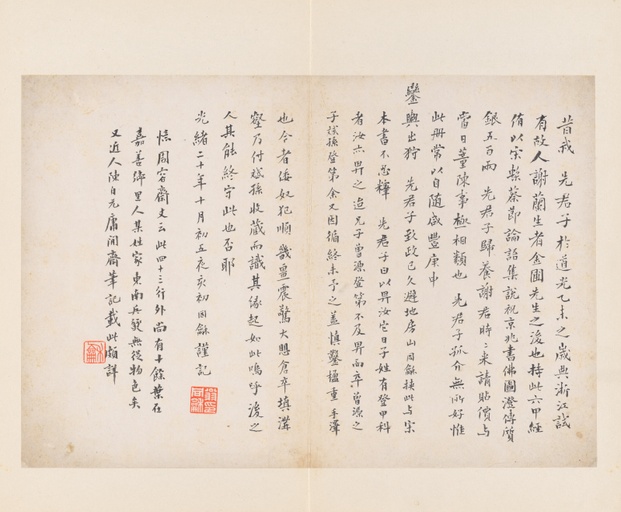 昔我　先君子於道光乙未之歲典浙江試
有故人謝蘭生者金圃先生之後也持此六甲經
侑以宋槧蔡節論語集說祝京兆書佛圖澄傳質
銀五百兩　先君子歸養謝君時時來請貼價與
當日董陳事極相類也　先君子孤介無所好惟
此冊常以自隨咸豐庚申
鑾輿出狩　先君子致政已久避地房山因龢挾此與宋
本書不忍釋　先君子曰以畀汝它日子姓有登甲科
者汝亦畀之迨兄子曾源登第不及畀而卒曾源之
子斌孫登第余又因循終未予之蓋慎鑿楹重手澤
也今者倭奴犯順　畿畺震驚大懸倉卒填溝
壑乃付斌孫收藏而識其緣起如此嗚呼後之
人其能終守此也否耶
光緒二十年十月初五夜亥初因龢謹記
憶閻容齋文云此四十三行外尚有十餘葉在
嘉善鄉里人某姓家東南兵燹無從物色矣
又近人陳白元庸閒齋筆記載此頗詳